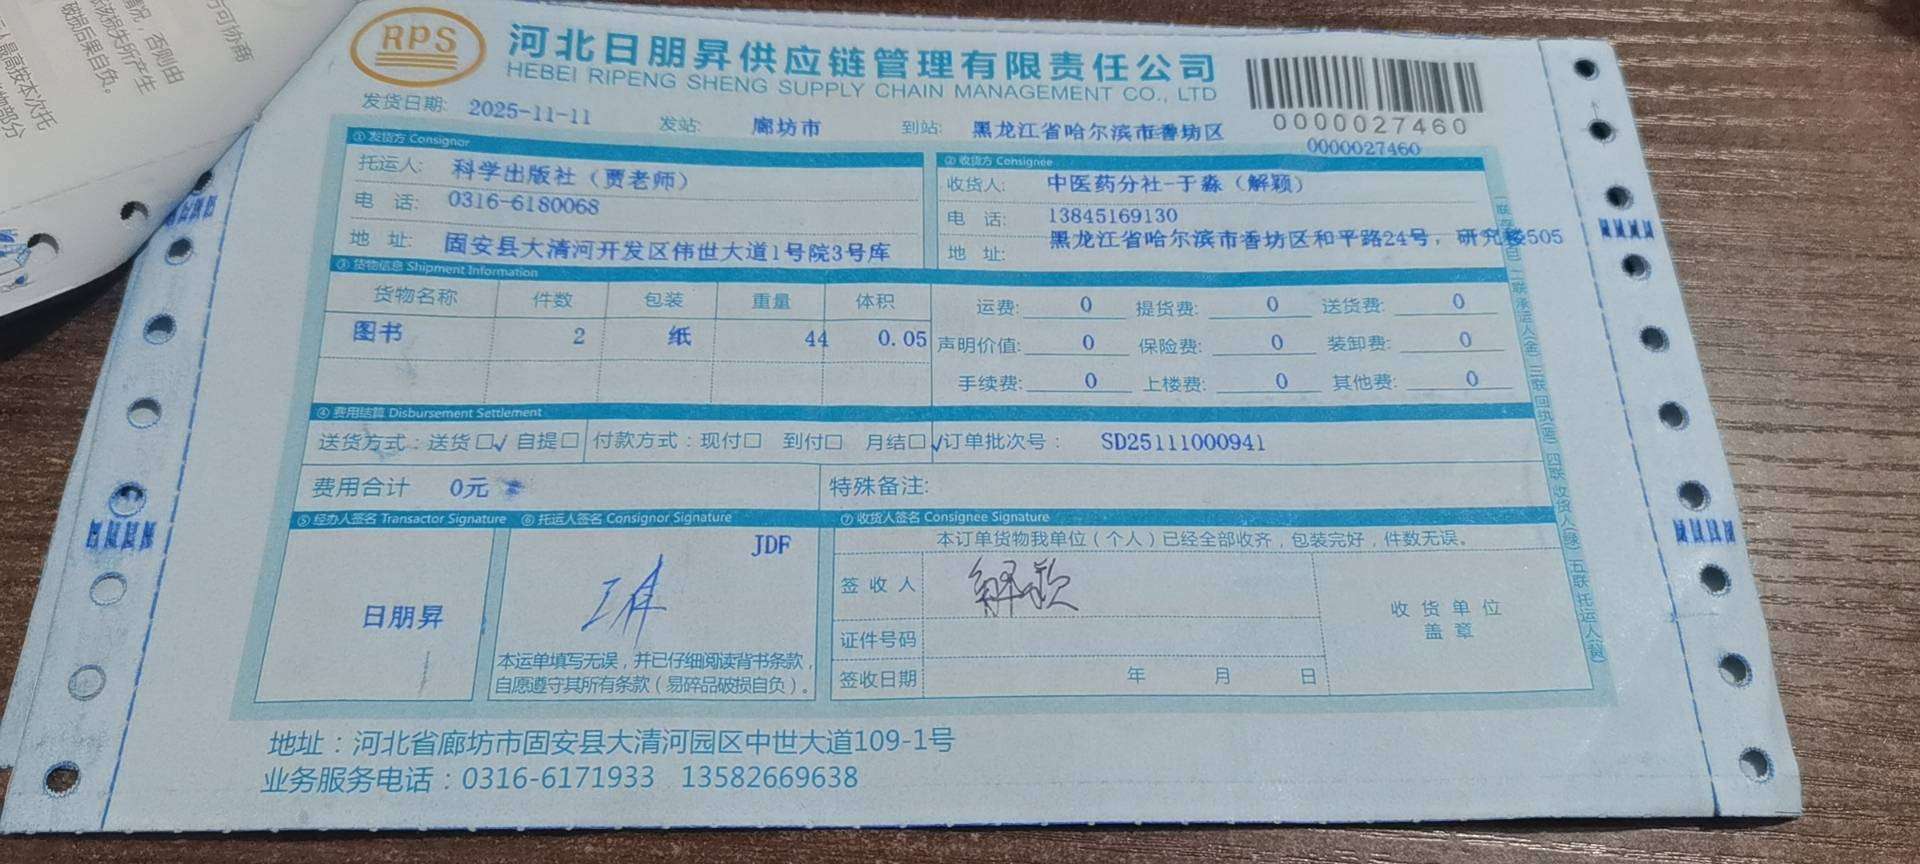 RPS
河北日朋昇供应链管理有限责任公司
HEBEI RIPENG SHENG SUPPLY CHAIN MANAGEMENT CO., LTD
0000027460
发货日期: 2025-11-11 发站: 廊坊市 到站: 黑龙江省哈尔滨市香坊区 0000027460
① 发货方 Consignor
托运人: 科学出版社（贾老师）
电 话: 0316-6180068
地 址: 固安县大清河开发区伟世大道1号院3号库
② 收货方 Consignee
收货人: 中医药分社-于淼（解颖）
电 话: 13845169130
地 址: 黑龙江省哈尔滨市香坊区和平路24号，研究楼505
③ 货物信息 Shipment Information
货物名称 件数 包装 重量 体积
图书 2 纸 44 0.05
运费: 0 提货费: 0 送货费: 0
声明价值: 0 保险费: 0 装卸费: 0
手续费: 0 上楼费: 0 其他费: 0
④ 费用结算 Disbursement Settlement
送货方式：送货□√ 自提□ 付款方式：现付□ 到付□ 月结□√ 订单批次号： SD25111000941
费用合计 0元 特殊备注:
⑤ 经办人签名 Transactor Signature ⑥ 托运人签名 Consignor Signature ⑦ 收货人签名 Consignee Signature
日朋昇
JDF
本运单填写无误，并已仔细阅读背书条款，
自愿遵守其所有条款（易碎品破损自负）。
本订单货物我单位（个人）已经全部收齐，包装完好，件数无误。
签 收 人 解颖
证件号码
签收日期 年 月 日
收 货 单 位
盖 章
地址：河北省廊坊市固安县大清河园区中世大道109-1号
业务服务电话：0316-6171933 13582669638